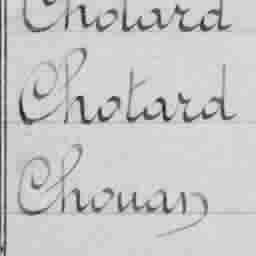 Chotard
Chotard
Chouan